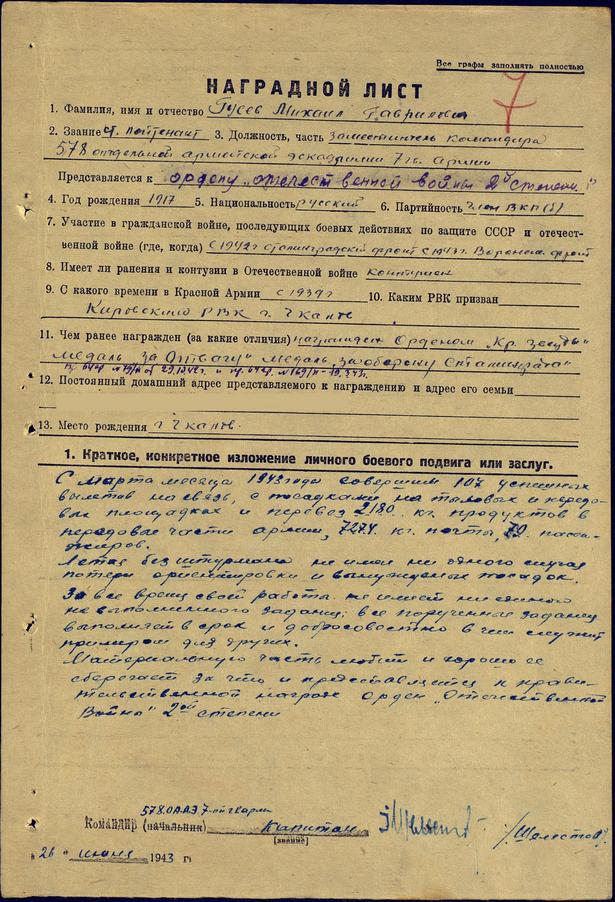 Все графы заполнять полностью
7
НАГРАДНОЙ ЛИСТ
1. Фамилия, имя и отчество Гусев Михаил Гаврилович
2. Звание ст. лейтенант 3. Должность, часть заместитель командира
578 отдельной армейской эскадрилии 7 гв. армии
Представляется к ордену „отечественной войны 2й степени"
4. Год рождения 1917 5. Национальность русский 6. Партийность член ВКП(б)
7. Участие в гражданской войне, последующих боевых действиях по защите СССР и отечест-
венной войне (где, когда) с 1942г Сталинградский фронт с 1943г. Воронеж. фронт
8. Имеет ли ранения и контузии в Отечественной войне контужен
9. С какого времени в Красной Армии с 1939г 10. Каким РВК призван
Кировским РВК г. Чкалов
11. Чем ранее награжден (за какие отличия) награжден Орденом „Кр. Звезды"
медаль „за Отвагу" медаль „за оборону Сталинграда"
12. Постоянный домашний адрес представляемого к награждению и адрес его семьи
13. Место рождения г. Чкалов.
1. Краткое, конкретное изложение личного боевого подвига или заслуг.
С марта месяца 1943 года совершил 107 успешных
вылетов на связь, с посадками на тыловых и передо-
вых площадках и перевез 2180 кг. продуктов в
передовые части армии, 7274 кг. почты, 79 пасса-
жиров.
Летая без штурмана не имел ни одного случая
потери ориентировки и вынужденных посадок.
За все время свой работы не имеет ни единого
не выполненного задания; все порученные задания
выполняет в срок и добросовестно в чем служит
примером для других.
Материальную часть любит и хорошо ее
сберегает за что и представляется к прави-
тельственной награде Орден „Отечественной
Войны" 2ой степени
578 ОААЭ 7-ой гв арми
Командир (начальник) капитан /Шелестов/.
(звание)
„26" июня 1943 г.